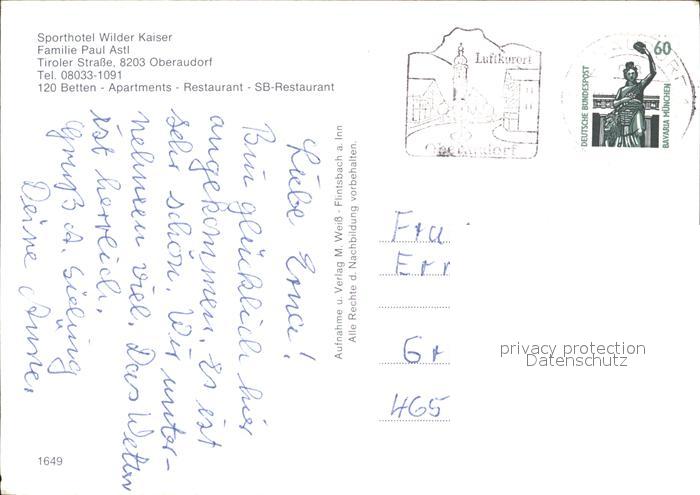 Sporthotel Wilder Kaiser
Familie Paul Astl
Tiroler Straße, 8203 Oberaudorf
Tel. 08033-1091
120 Betten - Apartments - Restaurant - SB-Restaurant
Luftkurort
Oberaudorf
60
DEUTSCHE BUNDESPOST
BAVARIA MÜNCHEN
Liebe Erna!
Bin glücklich hier
angekommen. Es ist
sehr schön. Wir unter-
nehmen viel. Das Wetter
ist herrlich.
Gruß A.
Deine Anne.
Aufnahme u. Verlag M. Weiß - Flintsbach a. Inn
Alle Rechte d. Nachbildung vorbehalten.
Frau
Err
Gr
465
privacy protection
Datenschutz
1649